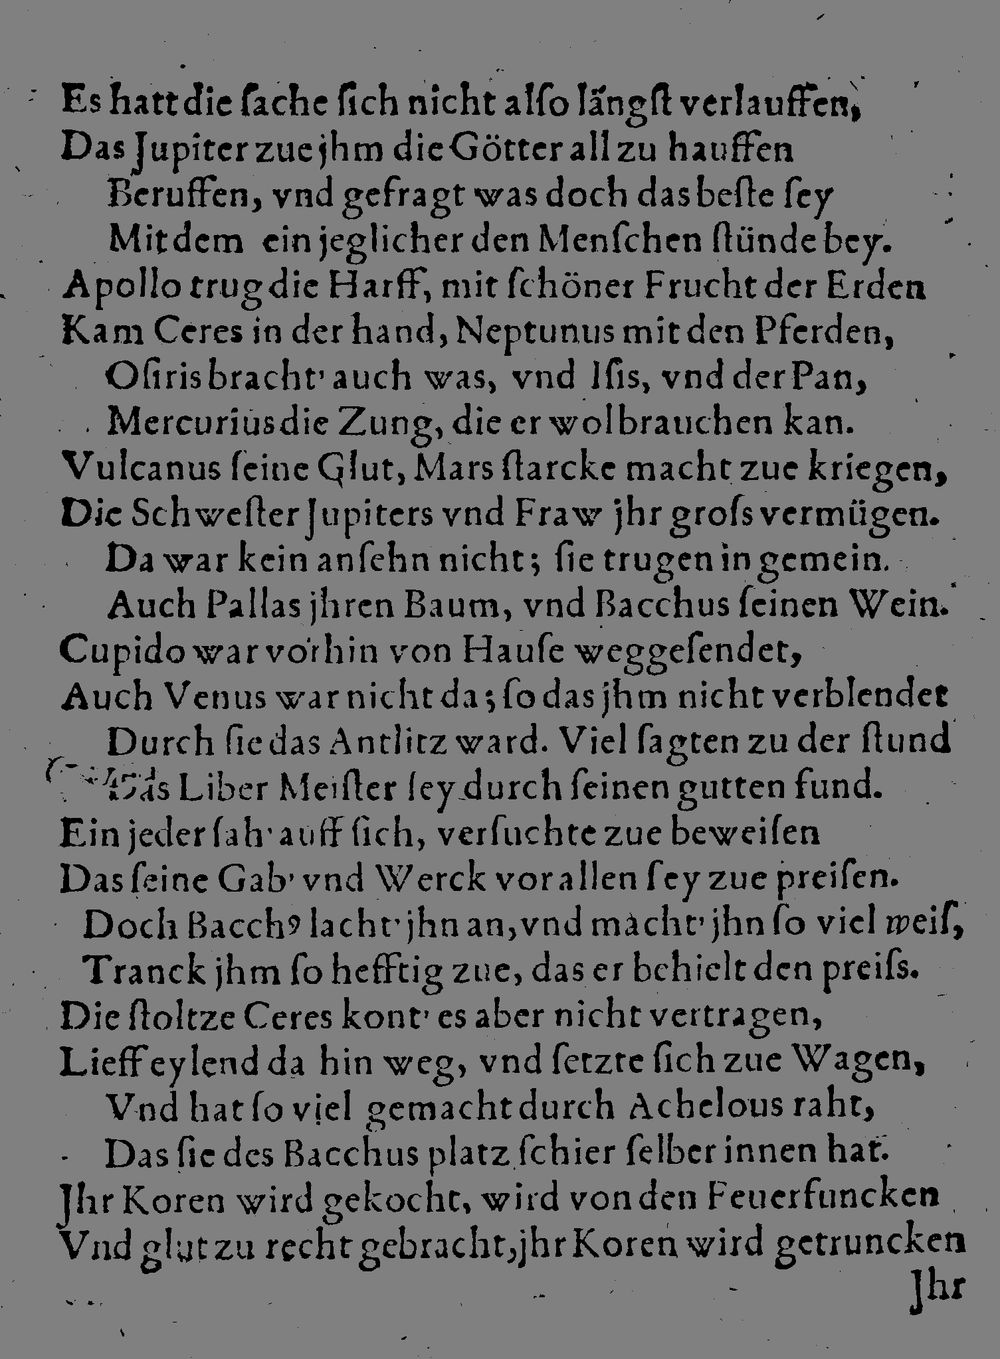 Es hatt die ſache ſich nicht alſo längſt verlauffen,
Das Jupiter zue jhm die Götter all zu hauffen
Beruffen, vnd gefragt was doch das beſte ſey
Mit dem ein jeglicher den Menſchen ſtünde bey.
Apollo trug die Harff, mit ſchöner Frucht der Erden
Kam Ceres in der hand, Neptunus mit den Pferden,
Oſiris bracht' auch was, vnd Iſis, vnd der Pan,
Mercurius die Zung, die er wol brauchen kan.
Vulcanus ſeine Glut, Mars ſtarcke macht zue kriegen,
Die Schweſter Jupiters vnd Fraw jhr groſs vermügen.
Da war kein anſehn nicht; ſie trugen in gemein.
Auch Pallas jhren Baum, vnd Bacchus ſeinen Wein.
Cupido war vorhin von Hauſe weggeſendet,
Auch Venus war nicht da; ſo das jhm nicht verblendet
Durch ſie das Antlitz ward. Viel ſagten zu der ſtund
Das Liber Meiſter ſey durch ſeinen gutten fund.
Ein jeder ſah' auff ſich, verſuchte zue beweiſen
Das ſeine Gab' vnd Werck vor allen ſey zue preiſen.
Doch Bacchꝰ lacht' jhn an, vnd macht' jhn ſo viel weiſ,
Tranck jhm ſo hefftig zue, das er behielt den preiſs.
Die ſtoltze Ceres kont' es aber nicht vertragen,
Lieff eylend da hin weg, vnd ſetzte ſich zue Wagen,
Vnd hat ſo viel gemacht durch Achelous raht,
Das ſie des Bacchus platz ſchier ſelber innen hat.
Jhr Koren wird gekocht, wird von den Feuerfuncken
Vnd glut zu recht gebracht, jhr Koren wird getruncken
Jhr